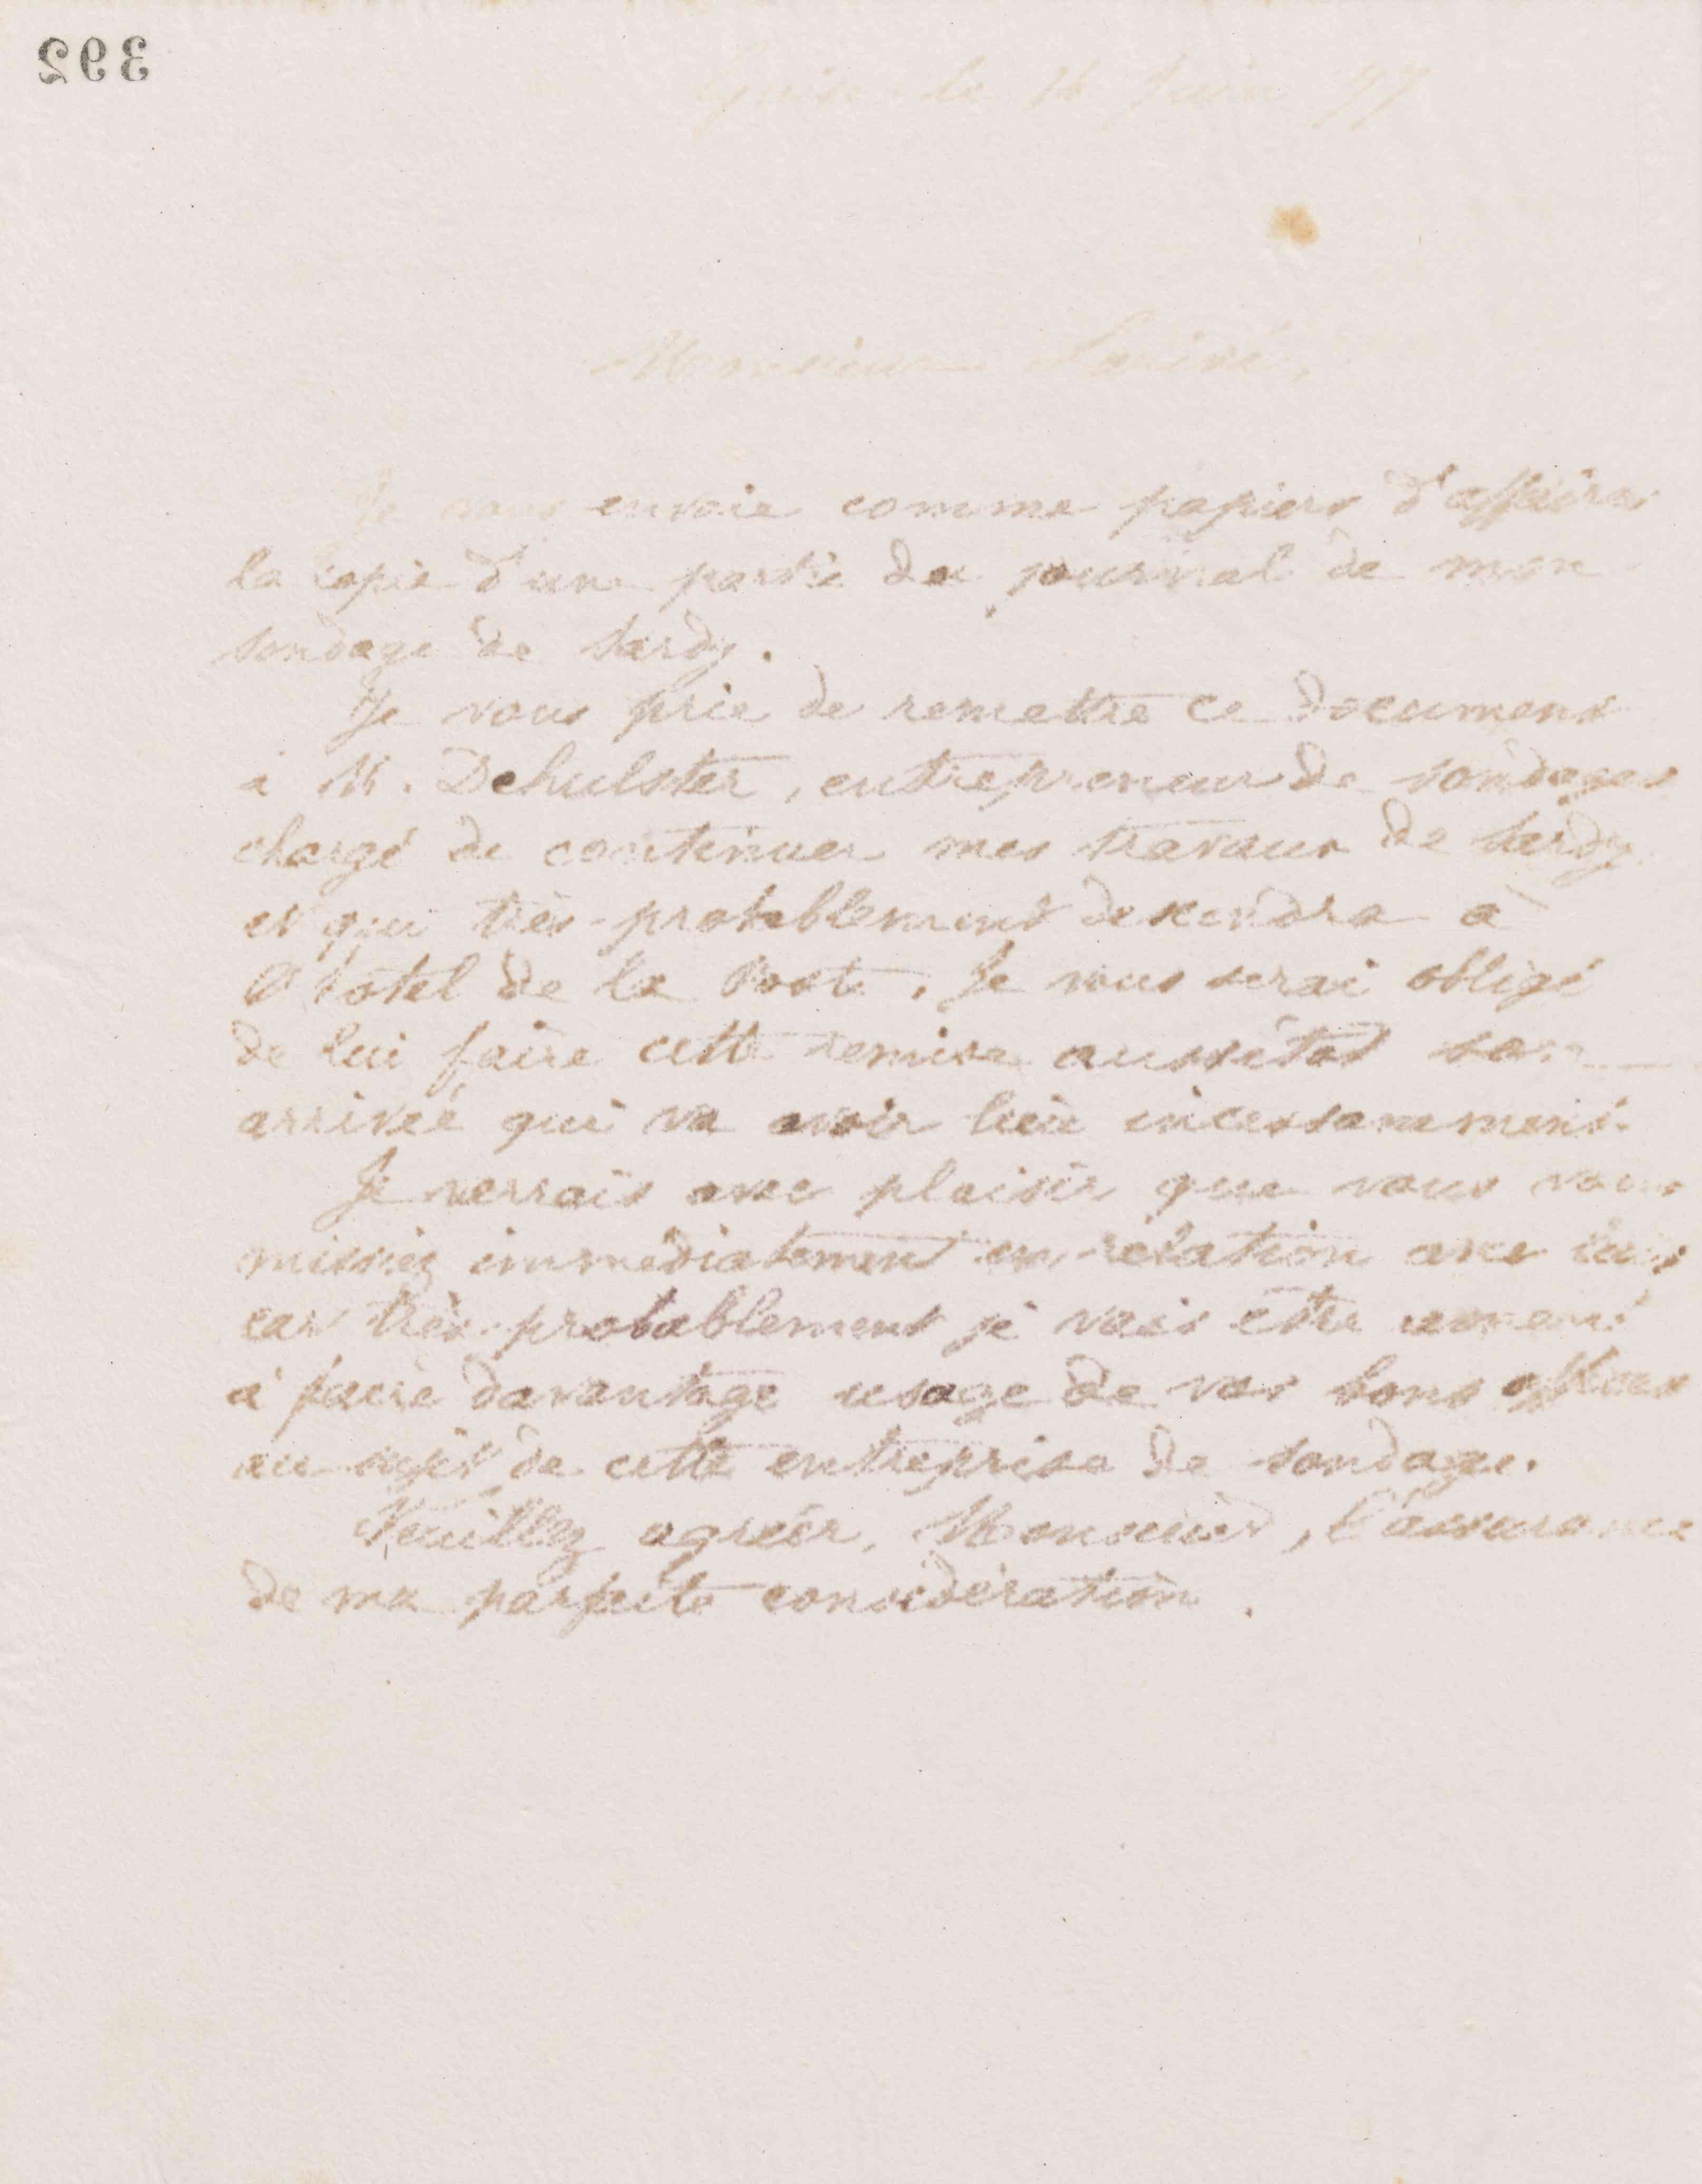 392
Guise le 16 Juin 77
Monsieur
Je vous envoie comme papiers d'affaires
la copie d'une partie du journal de mon
sondage de Sardy.
Je vous prie de remettre ce document
à M. Dehulster, entrepreneur de sondages
chargé de continuer mes travaux de Sardy
et qui très-probablement descendra à
l'hôtel de la Poste. Je vous serai obligé
de lui faire cette remise aussitôt son
arrivée qui va avoir lieu incessamment.
Je verrais avec plaisir que vous vous
missiez immédiatement en relation avec lui
car très-probablement je vais être amené
à faire davantage usage de vos bons offices
au sujet de cette entreprise de sondage.
Veuillez agréer, Monsieur, l'assurance
de ma parfaite considération.